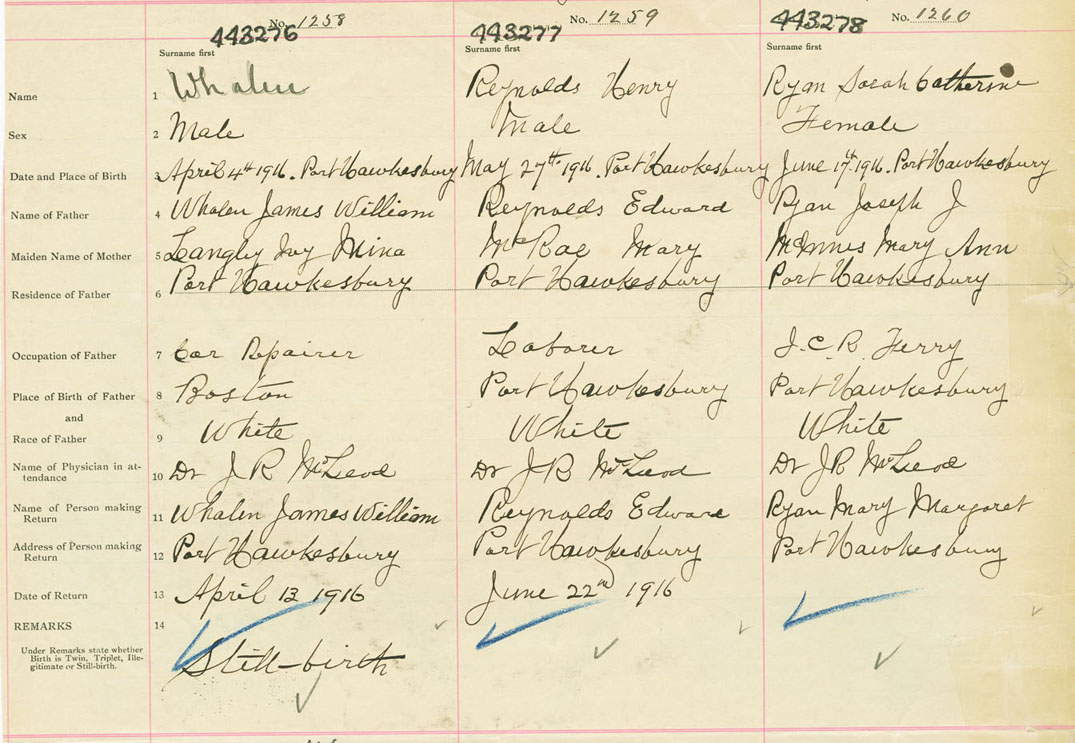 No. 1258 No. 1259 No. 1260
443276 443277 443278
Surname first Surname first Surname first
Name 1 Whalen Reynolds Henry Ryan Sarah Catherine
Sex 2 Male Male Female
Date and Place of Birth 3 April 4th 1916. Port Hawkesbury May 27th 1916. Port Hawkesbury June 17th 1916. Port Hawkesbury
Name of Father 4 Whalen James William Reynolds Edward Ryan Joseph J
Maiden Name of Mother 5 Langley Ivy Mina McRae Mary McInnes Mary Ann
Residence of Father 6 Port Hawkesbury Port Hawkesbury Port Hawkesbury
Occupation of Father 7 Car Repairer Laborer I.C.R. Ferry
Place of Birth of Father 8 Boston Port Hawkesbury Port Hawkesbury
and
Race of Father 9 White White White
Name of Physician in at-
tendance 10 Dr J R McLeod Dr J R McLeod Dr J R McLeod
Name of Person making
Return 11 Whalen James William Reynolds Edward Ryan Mary Margaret
Address of Person making
Return 12 Port Hawkesbury Port Hawkesbury Port Hawkesbury
Date of Return 13 April 13 1916 June 22nd 1916
REMARKS 14
Under Remarks state whether
Birth is Twin, Triplet, Ille-
gitimate or Still-birth.
Still-birth